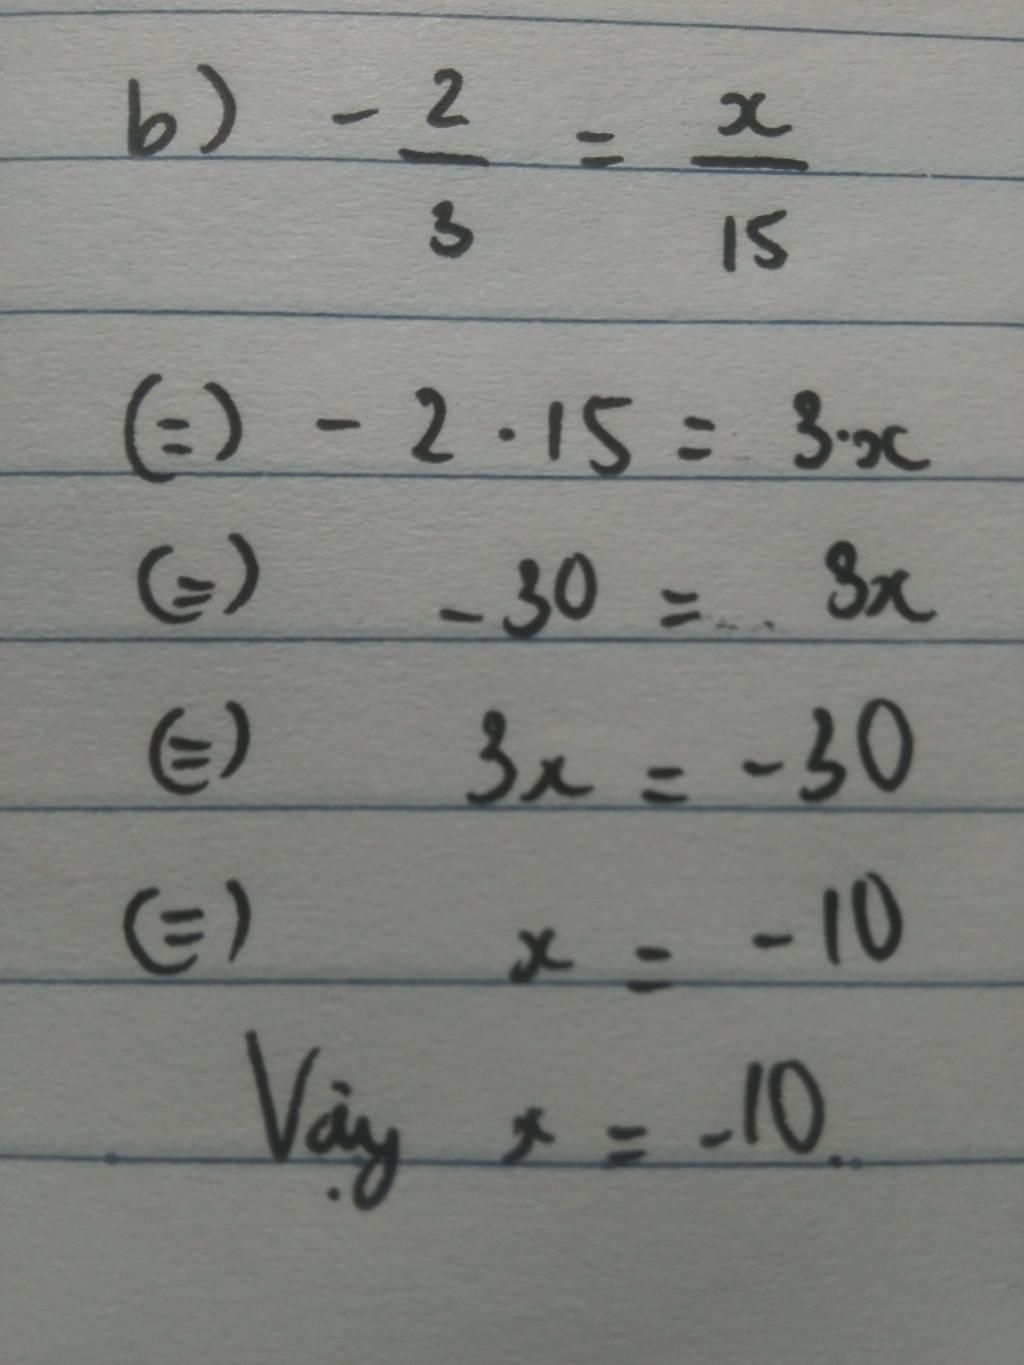 b) - 2/3 = x/15
(=) - 2 · 15 = 3·x
(=) -30 = 3x
(=) 3x = -30
(=) x = -10
Vậy x = -10.